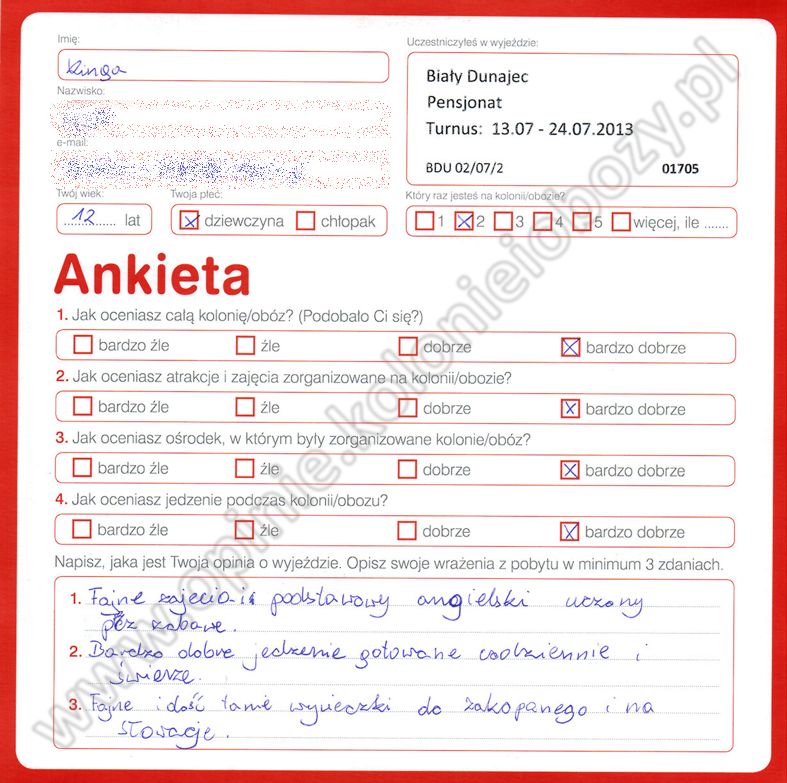 Imię:
Kinga
Nazwisko:
e-mail:
Twój wiek:
12 lat
Twoja płeć:
dziewczyna chłopak
Uczestniczyłeś w wyjeździe:
Biały Dunajec
Pensjonat
Turnus: 13.07 - 24.07.2013
BDU 02/07/2 01705
Który raz jesteś na kolonii/obozie?
1 2 3 4 5 więcej, ile .......
Ankieta
1. Jak oceniasz całą kolonię/obóz? (Podobało Ci się?)
bardzo źle źle dobrze bardzo dobrze
2. Jak oceniasz atrakcje i zajęcia zorganizowane na kolonii/obozie?
bardzo źle źle dobrze bardzo dobrze
3. Jak oceniasz ośrodek, w którym były zorganizowane kolonie/obóz?
bardzo źle źle dobrze bardzo dobrze
4. Jak oceniasz jedzenie podczas kolonii/obozu?
bardzo źle źle dobrze bardzo dobrze
Napisz, jaka jest Twoja opinia o wyjeździe. Opisz swoje wrażenia z pobytu w minimum 3 zdaniach.
1. Fajne zajęcia i podstawowy angielski uczony
zabawe.
2. Bardzo dobre jedzenie gotowane codziennie i
świerze.
3. Fajne i dość tanie wycieczki do zakopanego i na
słowacje.
www.opinie.kolonieiobozy.pl